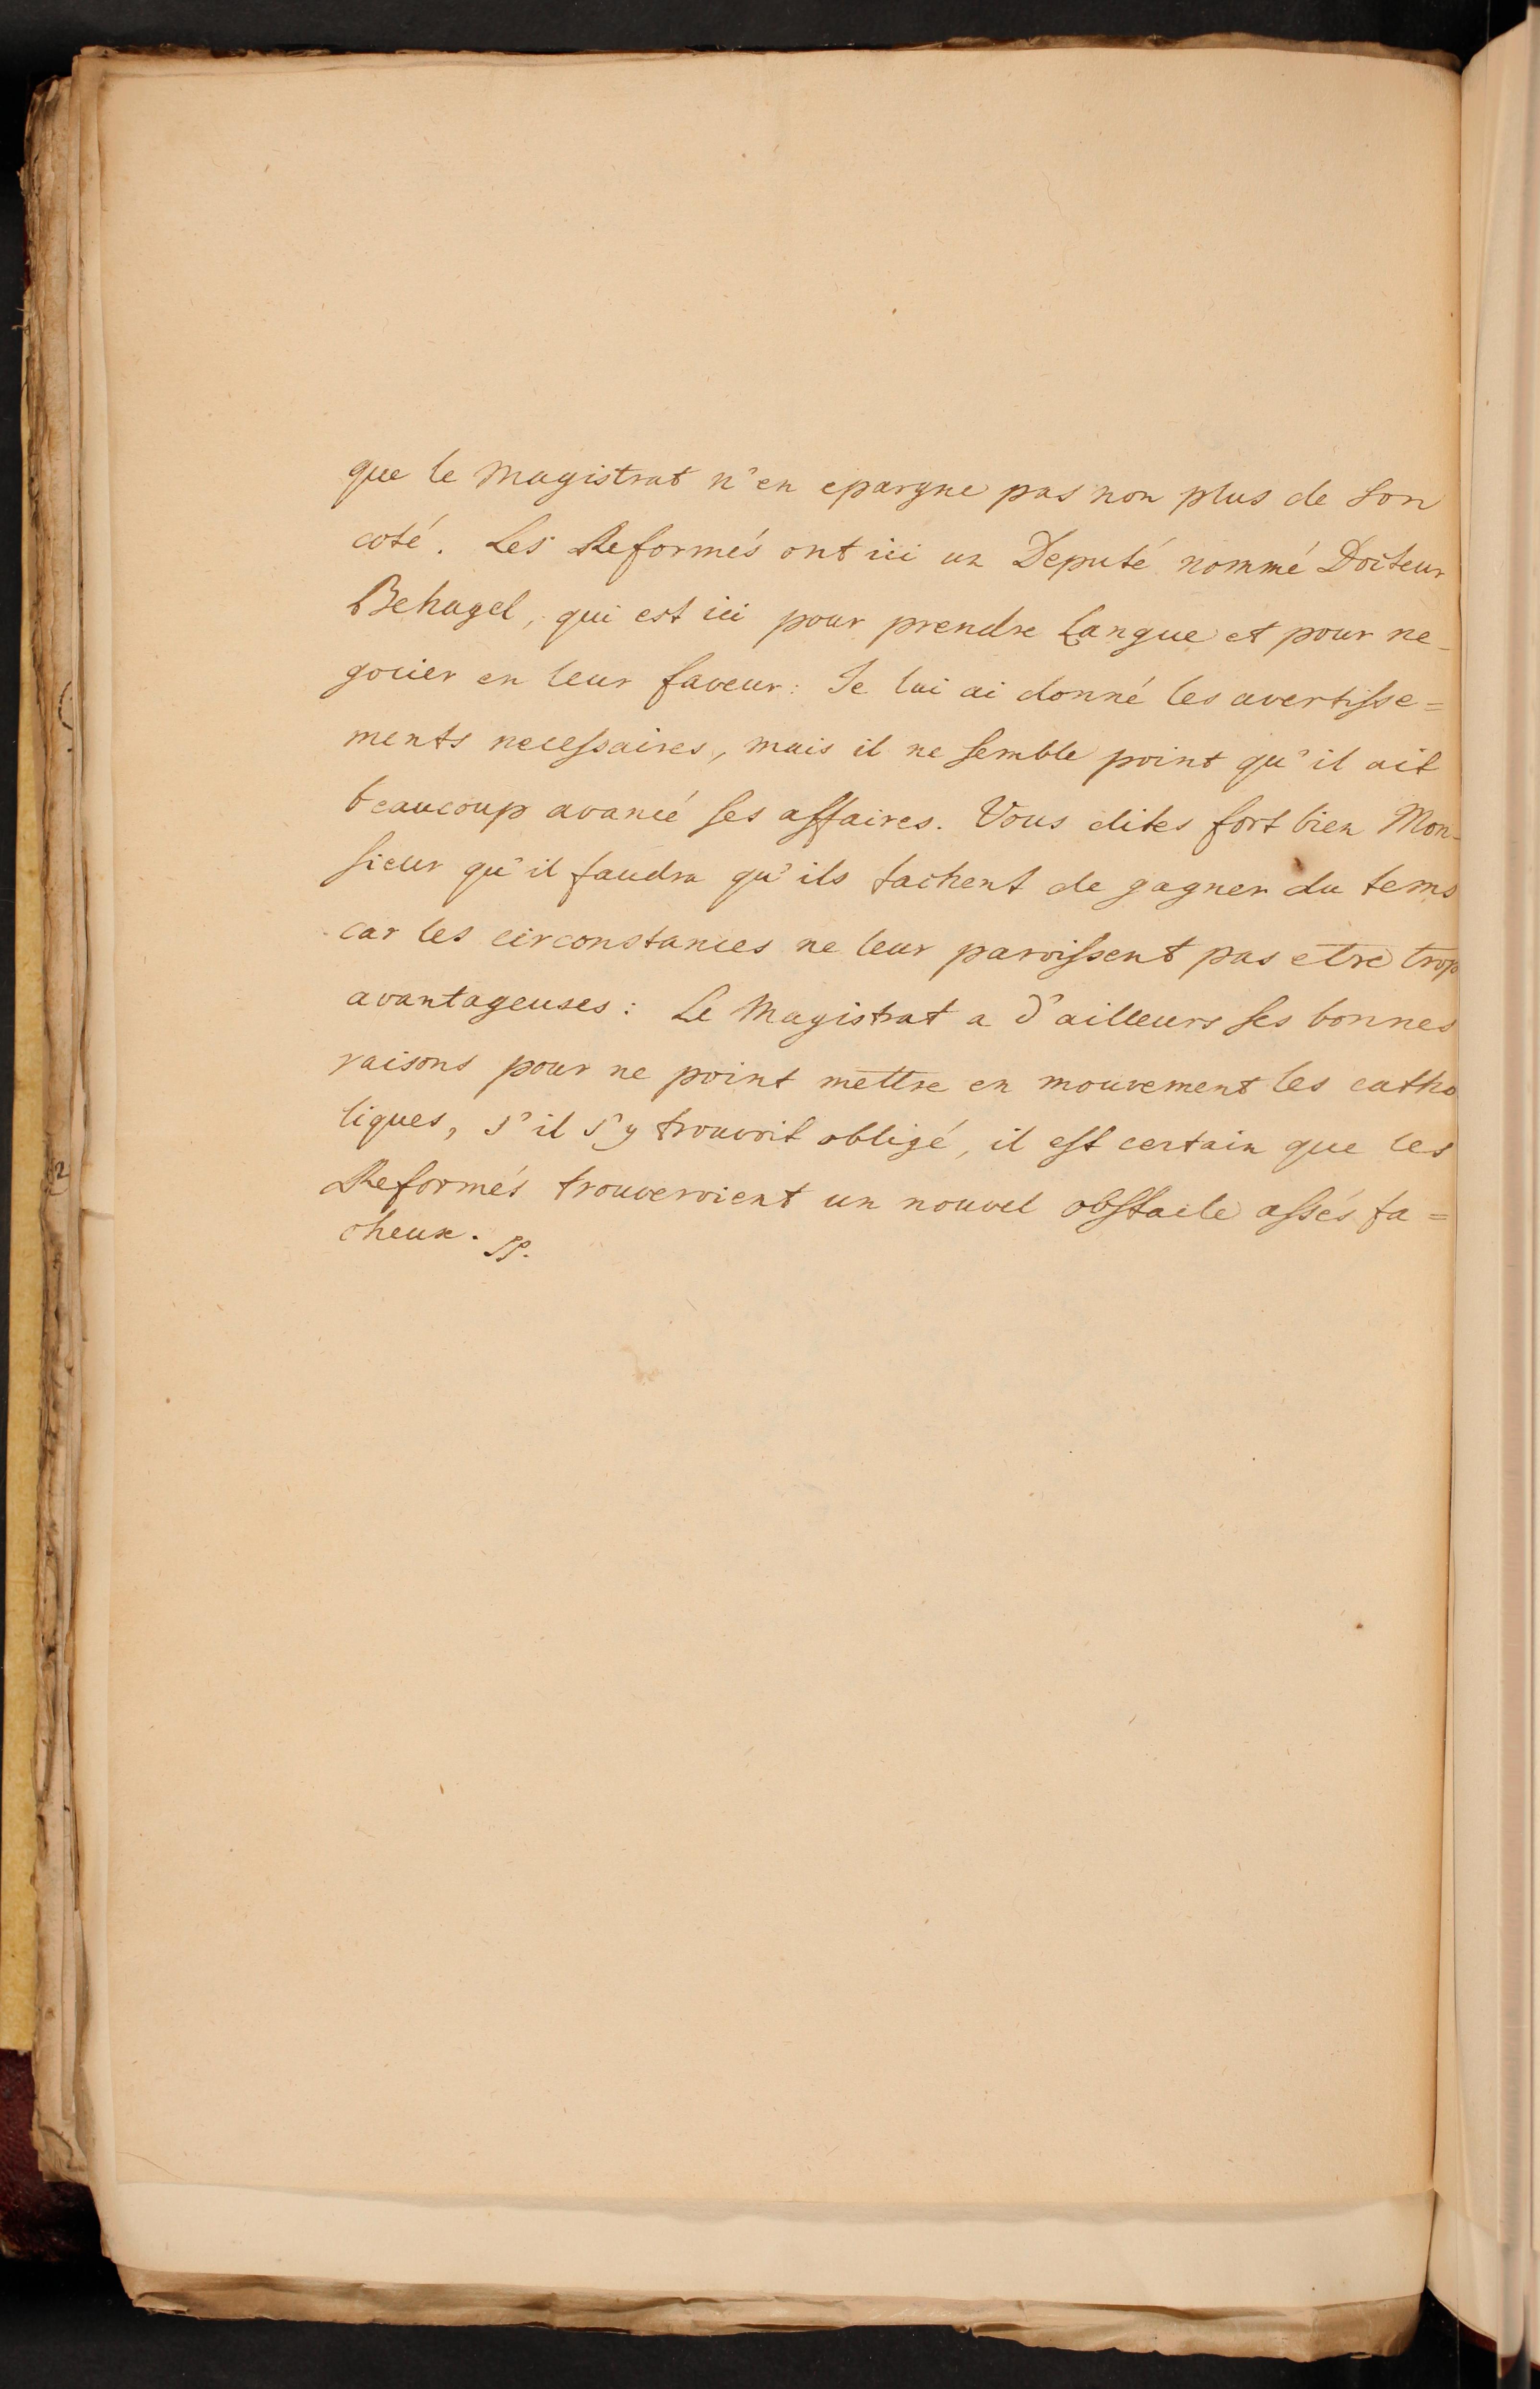 que le Magistrat n'en epargne pas non plus de son
coté. Les Reformés ont ici un Deputé nommé Docteur
Behagel, qui est ici pour prendre Langue et pour ne-
gocier en leur faveur: Je lui ai donné les avertisse=
ments necessaires, mais il ne semble point qu'il ait
beaucoup avancé ses affaires. Vous dites fort bien Mon-
sieur qu'il faudra qu'ils tachent de gagner du tems
car les circonstances ne leur paroissent pas etre trop
avantageuses: Le Magistrat a d'ailleurs ses bonnes
raisons pour ne point mettre en mouvement les catho
liques, s'il s'y trouvoit obligé, il est certain que les
Reformés trouveroient un nouvel obstacle assés fa=
cheux.